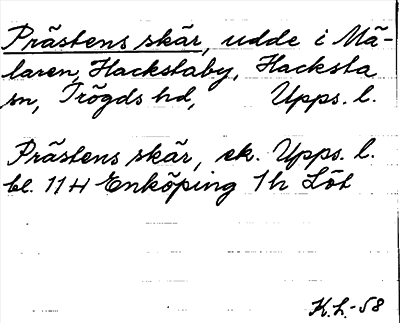 Prästens skär, udde i Mä-
laren, Hackstaby, Hacksta
sn, Trögds hd, Upps. l.
Prästens skär, ek. Upps. l.
bl. 114 Enköping 1h Löt
K.L.-58